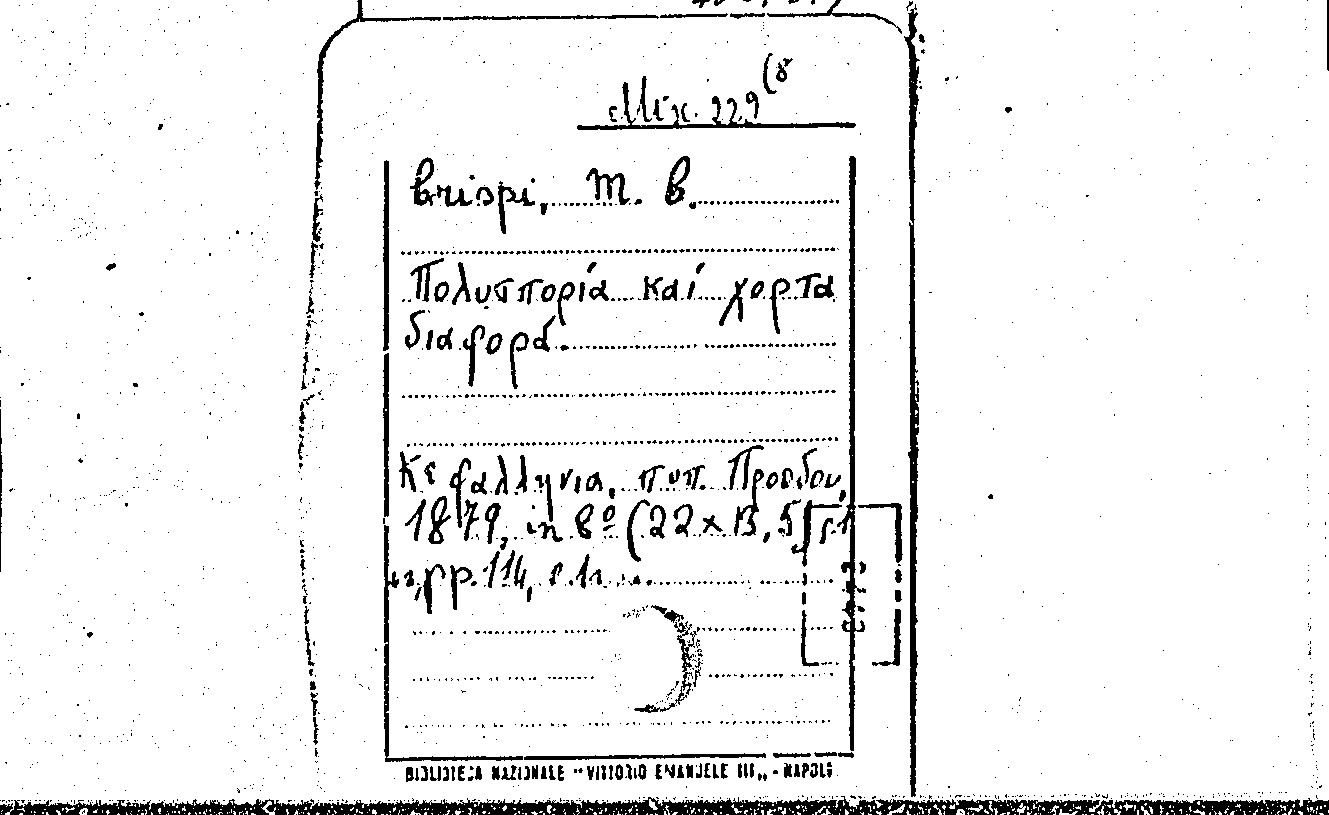 Mix. 229 (8
Crispi, M. C.
Πολυσπορία καί χορτα
διαφορά.
Κεφαλληνια, τυπ. Προοδου,
1879, in 8º (22 x 13,5)
pp. 114,
BIBLIOTECA NAZIONALE "VITTORIO EMANUELE III" - NAPOLI